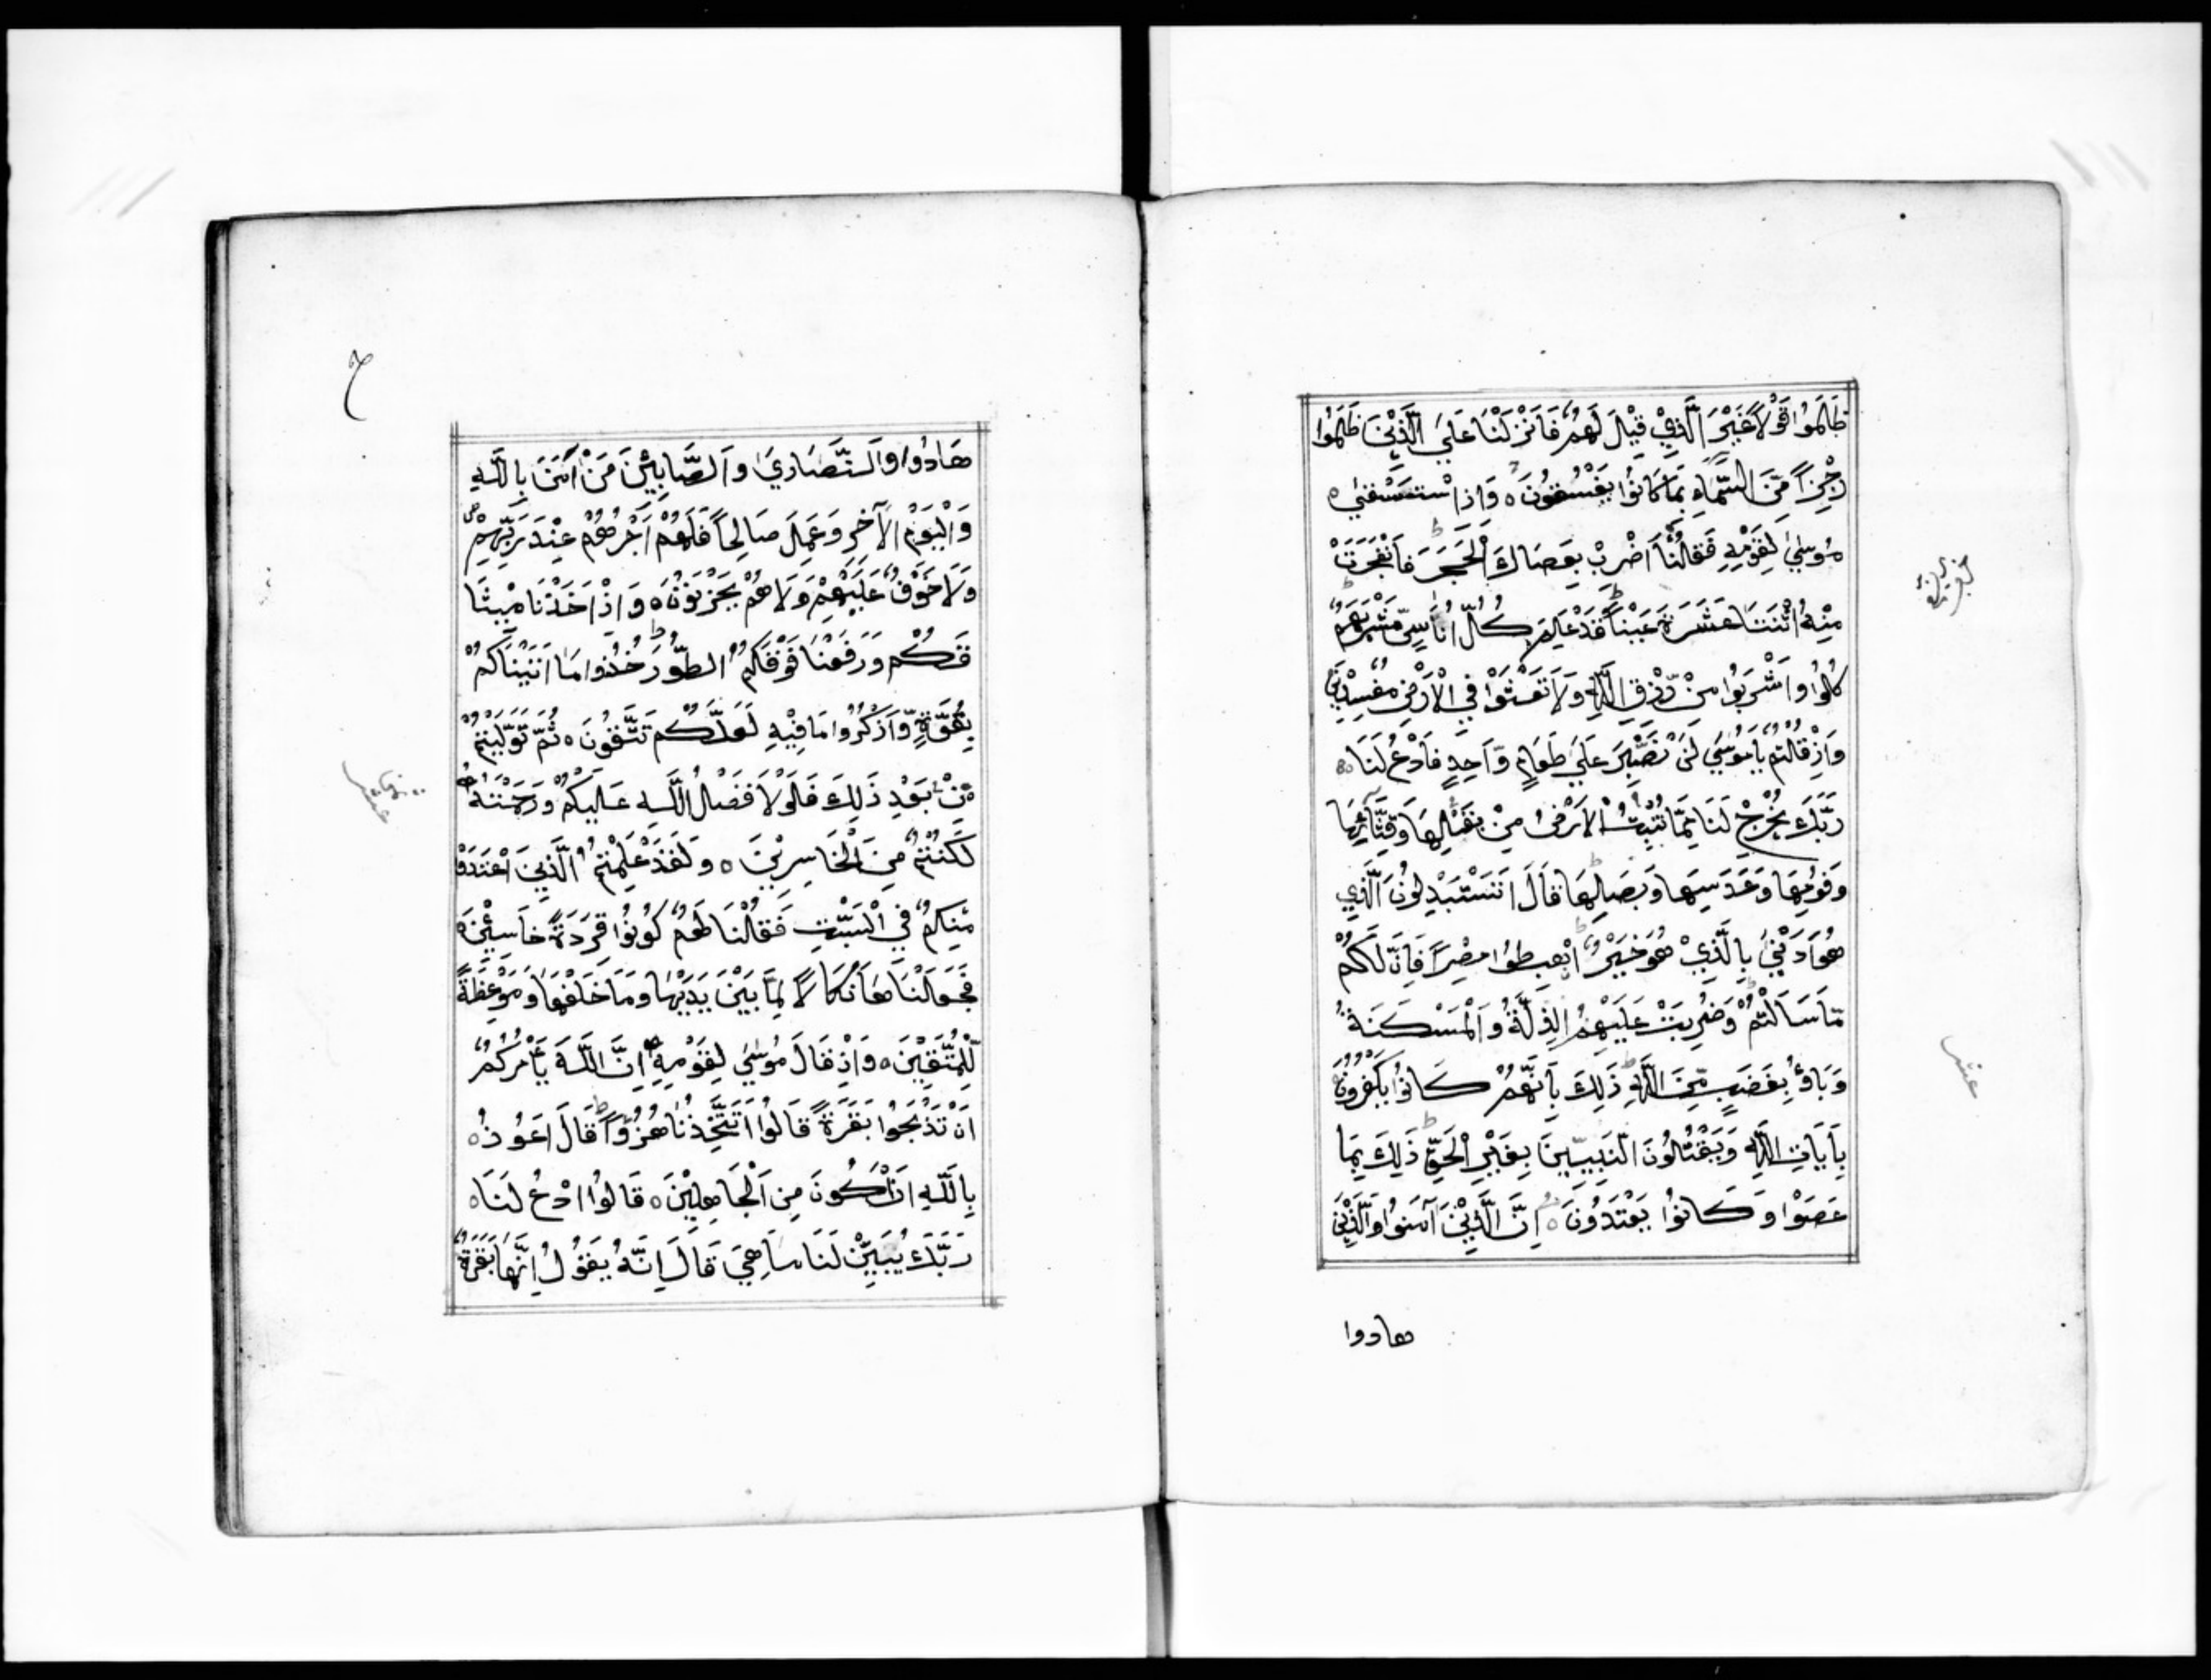 ظَلَمُوا قَوْلًا غَيْرَ الَّذِيْ قِيْلَ لَهُمْ فَاَنْزَلْنَا عَلَى الَّذِيْنَ ظَلَمُوا
رِجْزًا مِّنَ السَّمَاءِ بِمَا كَانُوْا يَفْسُقُوْنَ ه وَاِذِ اسْتَسْقٰى ه
مُوسٰى لِقَوْمِهِ فَقُلْنَا اضْرِبْ بِعَصَاكَ الْحَجَرَ فَانْفَجَرَتْ
مِنْهُ اثْنَتَا عَشَرَةَ عَيْنًا قَدْ عَلِمَ كُلُّ اُنَاسٍ مَّشْرَبَهُمْ
كُلُوْا وَاشْرَبُوْا مِنْ رِّزْقِ اللّٰهِ وَلَا تَعْثَوْا فِي الْاَرْضِ مُفْسِدِيْنَ
وَاِذْ قُلْتُمْ يَا مُوْسٰى لَنْ نَصْبِرَ عَلٰى طَعَامٍ وَّاحِدٍ فَادْعُ لَنَا ه
رَبَّكَ يُخْرِجْ لَنَا مِمَّا تُنْبِتُ الْاَرْضُ مِنْ بَقْلِهَا وَقِثَّائِهَا
وَفُوْمِهَا وَعَدَسِهَا وَبَصَلِهَا قَالَ اَتَسْتَبْدِلُوْنَ الَّذِي
هُوَ اَدْنٰى بِالَّذِيْ هُوَ خَيْرٌ اِهْبِطُوْا مِصْرًا فَاِنَّ لَكُمْ
مَّا سَاَلْتُمْ وَضُرِبَتْ عَلَيْهِمُ الذِّلَّةُ وَالْمَسْكَنَةُ
وَبَاؤُ بِغَضَبٍ مِّنَ اللّٰهِ ذٰلِكَ بِاَنَّهُمْ كَانُوْا يَكْفُرُوْنَ
بِاٰيَاتِ اللّٰهِ وَيَقْتُلُوْنَ النَّبِيِّيْنَ بِغَيْرِ الْحَقِّ ذٰلِكَ بِمَا
عَصَوْا وَكَانُوْا يَعْتَدُوْنَ ه اِنَّ الَّذِيْنَ اٰمَنُوْا وَالَّذِيْنَ
هادوا
عشر
هَادُوْا وَالنَّصَارٰى وَالصَّابِئِيْنَ مَنْ اٰمَنَ بِاللّٰهِ
وَالْيَوْمِ الْاٰخِرِ وَعَمِلَ صَالِحًا فَلَهُمْ اَجْرُهُمْ عِنْدَ رَبِّهِمْ
وَلَا خَوْفٌ عَلَيْهِمْ وَلَا هُمْ يَحْزَنُوْنَ ه وَاِذْ اَخَذْنَا مِيْثَا
قَكُمْ وَرَفَعْنَا فَوْقَكُمُ الطُّوْرَ خُذُوا مَا اٰتَيْنَاكُمْ
بِقُوَّةٍ وَّاذْكُرُوا مَا فِيْهِ لَعَلَّكُمْ تَتَّقُوْنَ ه ثُمَّ تَوَلَّيْتُمْ
مِّنْ بَعْدِ ذٰلِكَ فَلَوْلَا فَضْلُ اللّٰهِ عَلَيْكُمْ وَرَحْمَتُهُ
لَكُنْتُمْ مِنَ الْخَاسِرِيْنَ ه وَلَقَدْ عَلِمْتُمُ الَّذِيْنَ اعْتَدَوْ
مِنْكُمْ فِي السَّبْتِ فَقُلْنَا لَهُمْ كُوْنُوْا قِرَدَةً خَاسِئِيْنَ ه
فَجَعَلْنَاهَا نَكَالًا لِمَا بَيْنَ يَدَيْهَا وَمَا خَلْفَهَا وَمَوْعِظَةً
لِّلْمُتَّقِيْنَ ه وَاِذْ قَالَ مُوْسٰى لِقَوْمِهِ اِنَّ اللّٰهَ يَأْمُرُكُمْ
اَنْ تَذْبَحُوْا بَقَرَةً قَالُوْا اَتَتَّخِذُنَا هُزُوًا قَالَ اَعُوْذُ ه
بِاللّٰهِ اَنْ اَكُوْنَ مِنَ الْجَاهِلِيْنَ ه قَالُوْا ادْعُ لَنَا ه
رَبَّكَ يُبَيِّنْ لَنَا مَا هِيَ قَالَ اِنَّهُ يَقُوْلُ اِنَّهَا بَقَرَةٌ